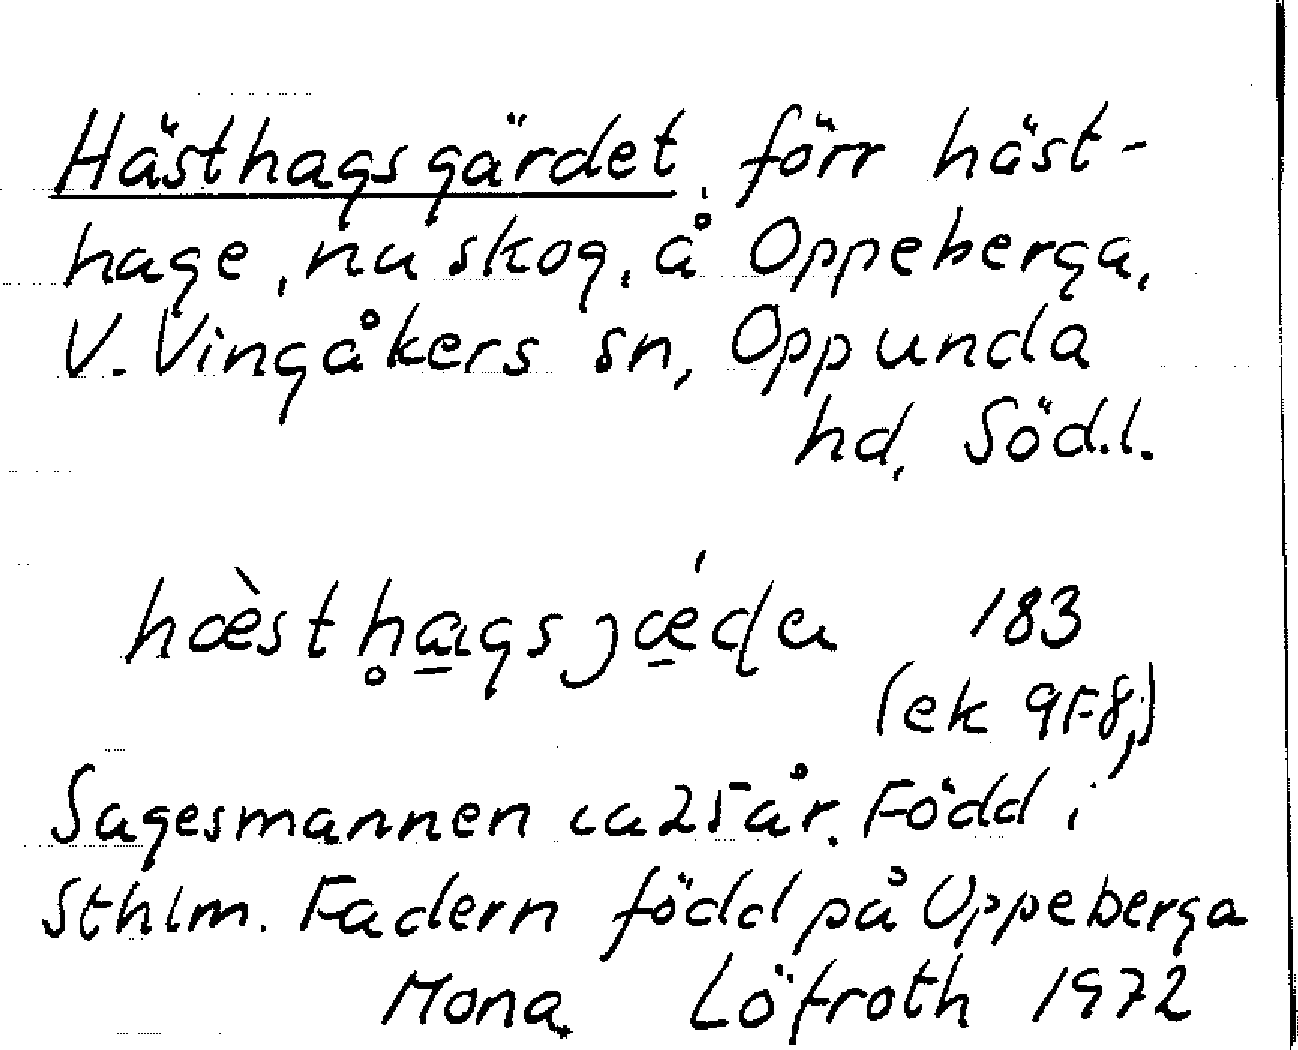 Hästhagsgärdet, förr häst-
hage, nu skog, å Oppeberga,
V. Vingåkers sn, Oppunda
hd, Söd.l.
hæ̀sth̥a̲gsȷǽ̲ɖa 183
(ek 9F8,)
Sagesmannen ca 25 år. Född i
Sthlm. Fadern född på Oppeberga
Mona Löfroth 1972